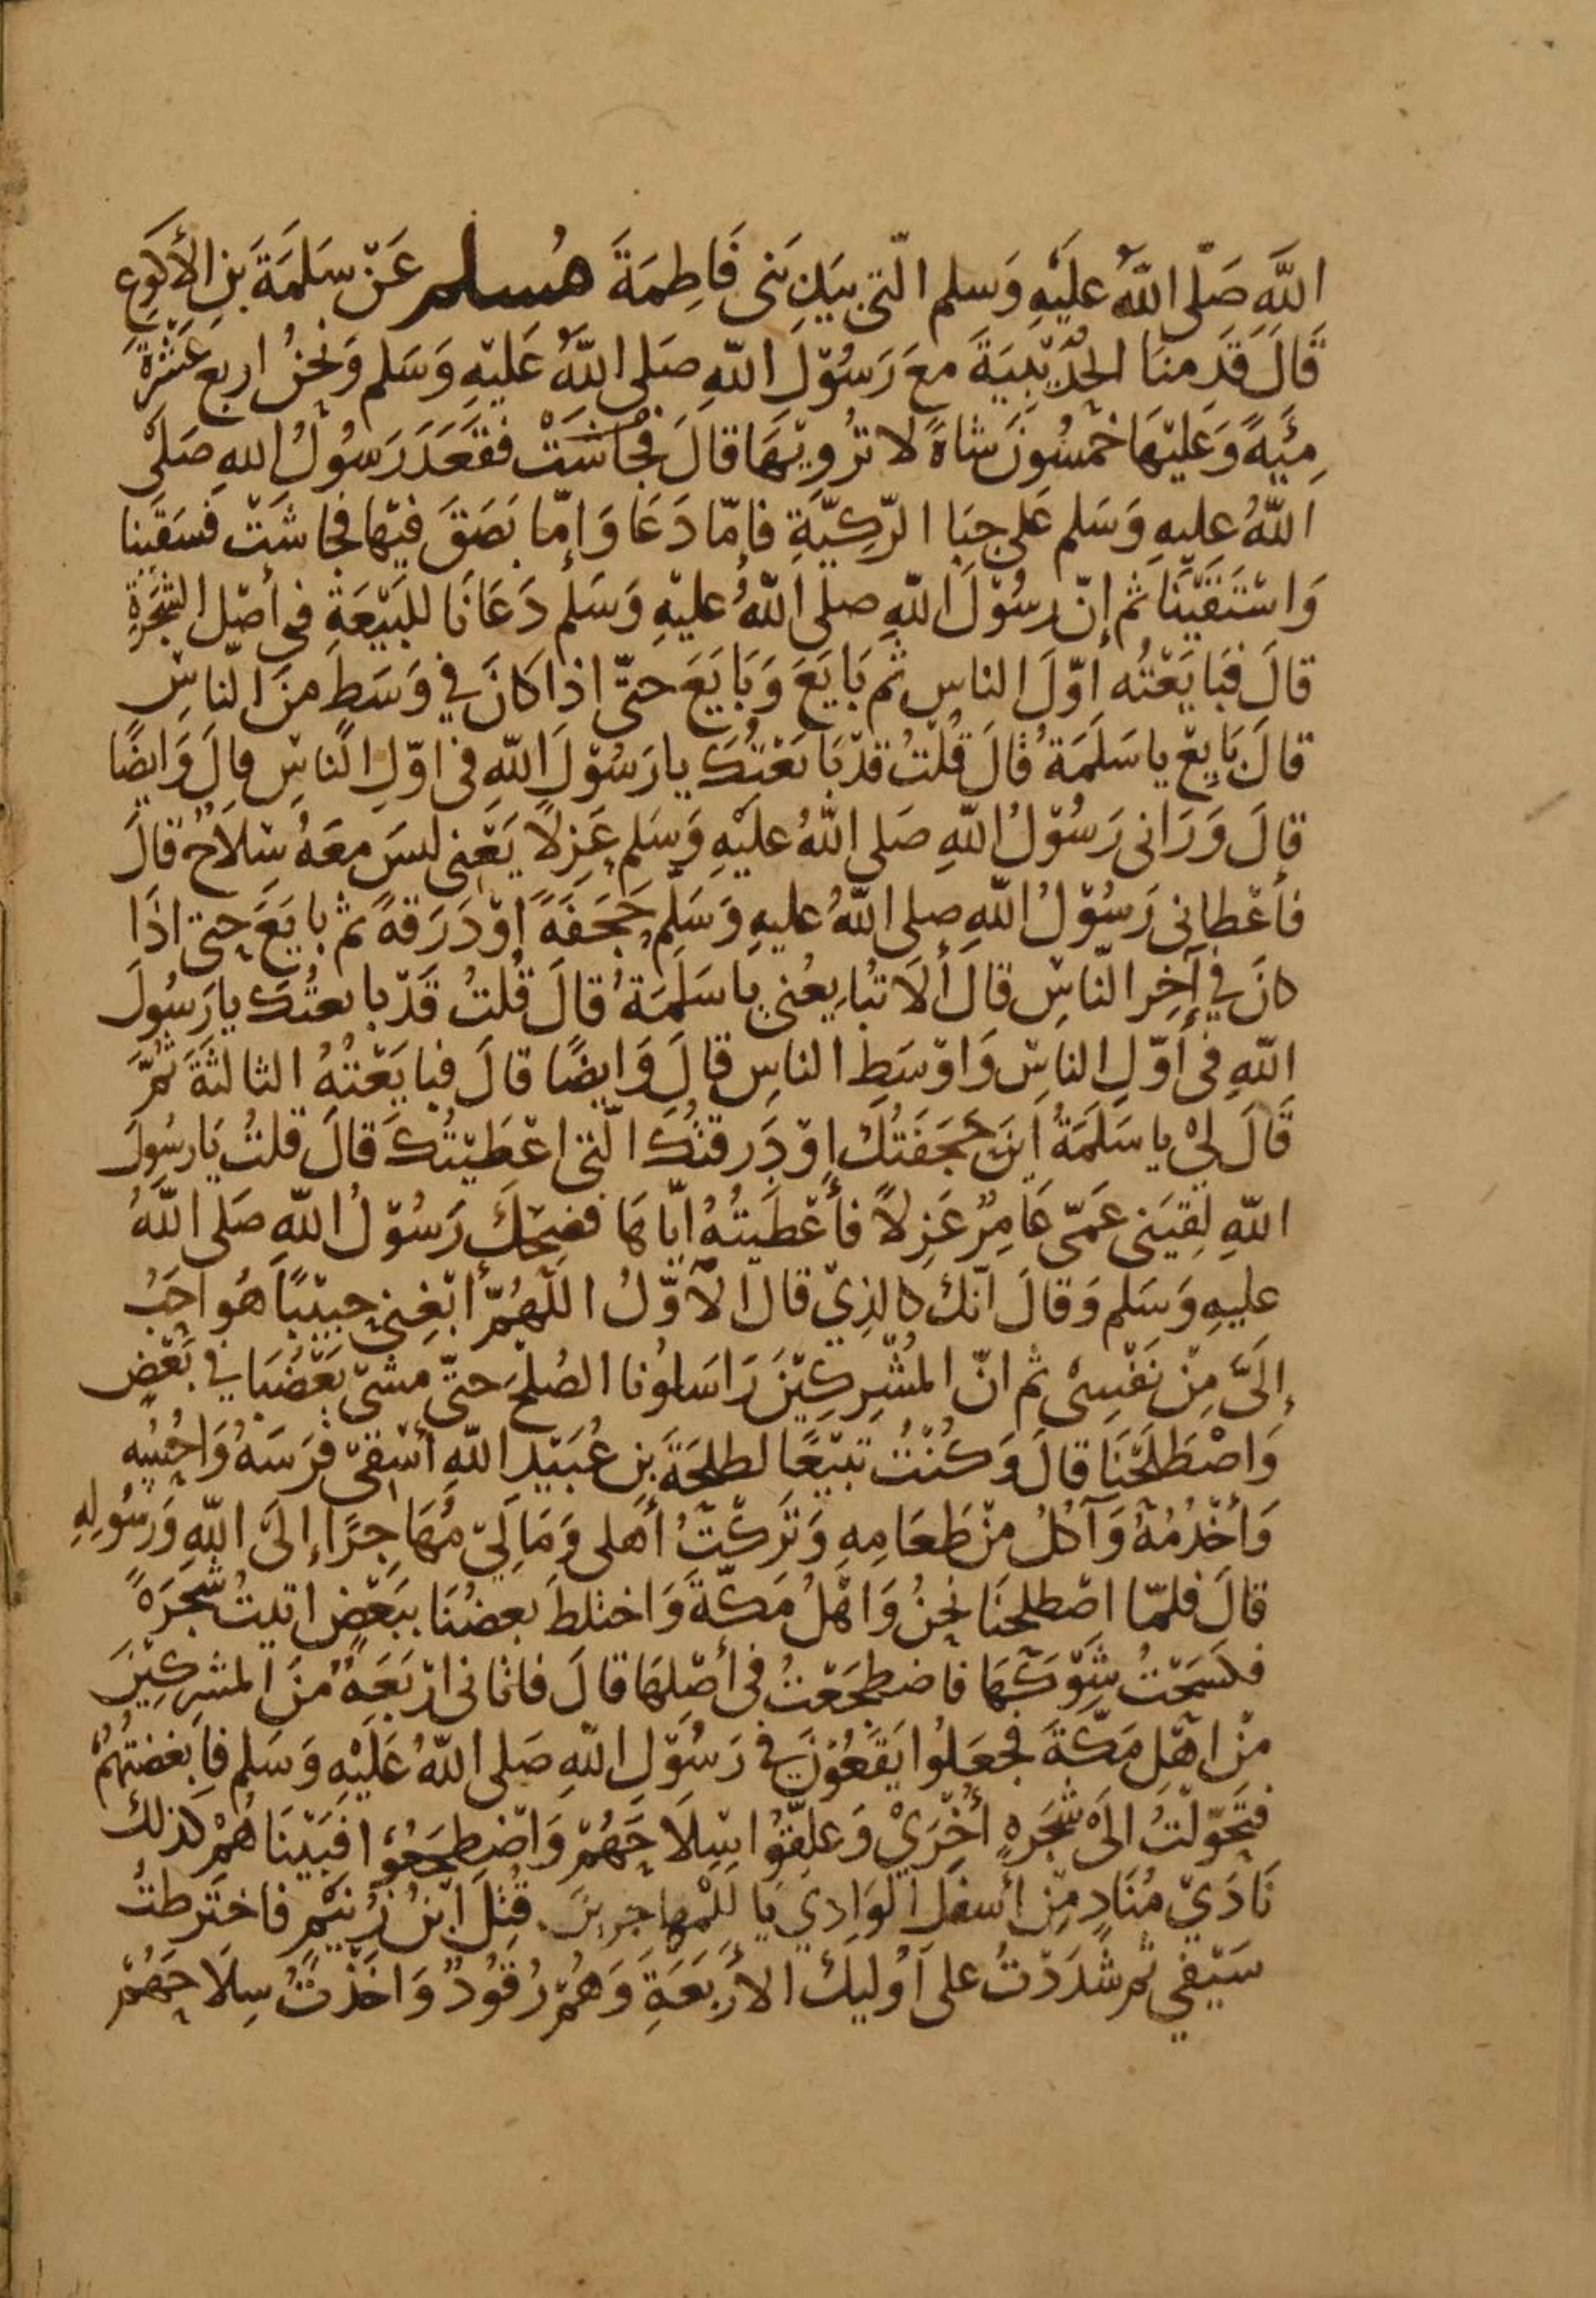 اللَّهِ صَلَّى اللَّهُ عَلَيْهِ وَسَلم الَّتي بَيْنَ بَنِي فَاطِمَةَ مُسلم عَنْ سَلَمَةَ بنِ الأَكْوَعِ
قَالَ قَدِمنَا الحُدَيْبِيَةَ معَ رَسُوْلِ اللهِ صَلى اللَّهُ عَلَيْهِ وَسَلم وَنَحْنُ اربع عَشْرَةَ
مِئَةً وَعَلَيْهَا خمْسُونَ شاةً لا تُرْوِيْهَا قالَ فَقَعَدَ رَسُوْلُ اللهِ صَلى
اللَّهُ عليهِ وَسَلم عَلى جبَا الرَّكِيَّةِ فإمّا دَعَا وَإمّا بَصَقَ فيْها فجاشَتْ فَسَقَيْنا
وَاسْتَقَيْنَا ثم إنّ رسُوْلَ اللهِ صلى اللهُ عليْهِ وَسَلم دَعَانَا للبَيْعَةِ في أصْلِ الشجَرَةِ
قالَ فبَايَعْتُه اوّلَ الناسِ ثم بَايَعَ وَبَايَعَ حتّى اذا كانَ في وَسَطٍ منَ النّاسِ
قالَ بَايِعْ يا سَلَمَةُ قالَ قُلْتُ قدْ بَايَعْتُكَ يا رَسُوْلَ اللهِ في اوّلِ النَّاسِ قالَ وَايضًا
قالَ وَرَانى رَسُوْلُ اللهِ صَلى اللهُ عليْهِ وَسَلم عَزِلًا يَعْنى ليسَ معَهُ سِلَاحٌ قالَ
فأعْطانى رَسُوْلُ اللهِ صلى اللهُ عليهِ وَسَلم حَجَفَةً اوْ دَرَقةً ثم بايَعَ حتى اذَا
كانَ في آخِرِ النّاسِ قالَ ألَا تُبَايعُنى يا سَلَمَةُ قالَ قُلتُ قَدْ بايعتُكَ يا رَسُولَ
اللهِ في أوّلِ الناسِ وَاوْسَطِ الناسِ قالَ وَايضًا قالَ فبايَعْتُهُ الثالثَةَ ثُمَّ
قَالَ لِيْ يا سَلَمَةُ اينَ حَجَفَتُكَ اوْ دَرقتُكَ الَّتى اعْطَيْتُكَ قالَ قلتُ يَا رسُولَ
اللهِ لقِيَنى عَمّى عَامِرٌ عَزِلًا فأعْطَيتُهُ ايّاهَا فضحِكَ رَسُوْلُ اللهِ صَلى اللهُ
عليهِ وَسَلم وَقالَ انّك كالذِيْ قالَ الأوّلُ اللّهُمَّ ابْغِنى حبيْبًا هُو احَبُّ
إلَىَّ مِنْ نَفْسِىْ ثم انّ المُشْرِكِيْنَ رَاسَلونا الصُلْحَ حَتّى مشىْ بَعْضُنا في بَعْضٍ
وَاصْطَلَحْنَا قالَ وَكُنْتُ تبِيْعًا لطلحَةَ بنِ عُبَيْدِ اللهِ أسْقِىْ فرَسَهُ وَاحُسُّه
وَأخْدُمُهُ وَآكلُ منْ طَعَامِهِ وَتَرَكْتُ أهلى وَمَالِيْ مُهَاجِرًا إلىَ اللهِ وَرَسُولِهِ
قالَ فلمّا اصْطلحنَا نحنُ وَاهْلُ مَكّةَ وَاختلطَ بعضُنَا ببَعْضٍ اتيتُ شجَرَةً
فكسَحْتُ شَوْكَهَا فاضطجَعْتُ في أصْلِهَا قالَ فاتانى ارْبَعَةٌ منَ المشرِكِيْنَ
منْ اهْلِ مَكّةَ فجعَلُوا يَقَعُوْنَ في رَسُوْلِ اللهِ صَلى اللهُ عَلَيْهِ وَسَلم فابغضتُهُمْ
فتَحَوّلْتُ الَى شجَرهٍ أخْرَيْ وَعلّقُوا سِلَاحَهُمْ وَاضْطجَعُوا فَبَيْنَا هُمْ كذلكَ
نَادَيْ مُنَادٍ مِنْ أسفلِ الوَادِي يَا لَلْمُهاجرِينَ قُتِلَ ابْنُ زُنَيْمٍ فاختَرطتُ
سَيْفي ثم شَدَدْتُ على اُوليِكَ الأرْبَعَةِ وَهُمْ رُقُوْدٌ وَاخَذْتُ سِلَاحَهُمْ